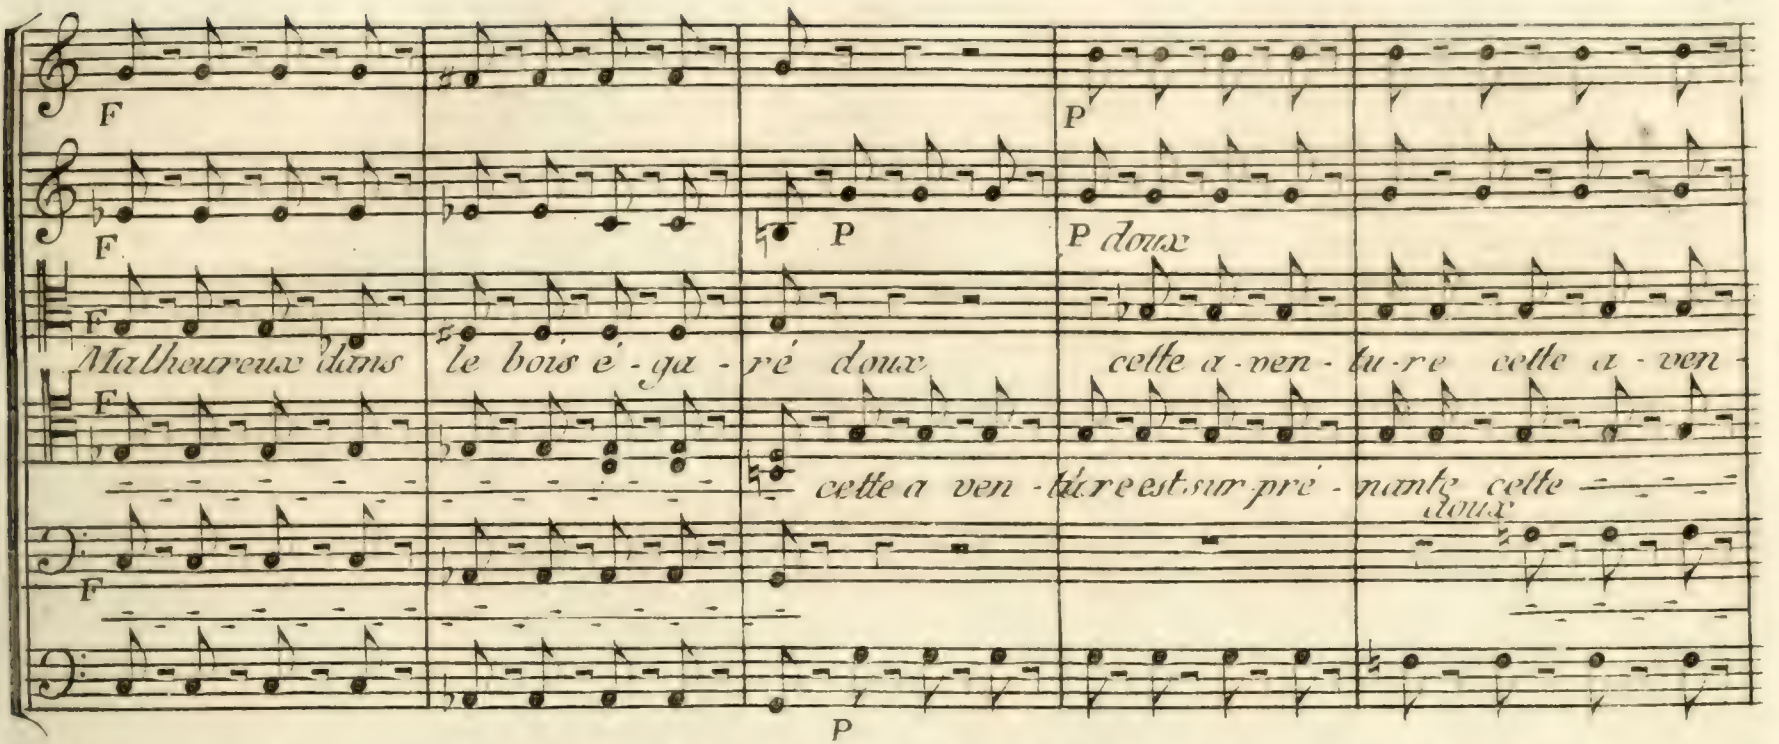 F
P
F P P doux
F
Malheureux dans le bois é - ga - ré doux cette a - ven - tu - re cette a - ven -
F
cette a ven - ture est sur pré - nante cette
doux
F
P